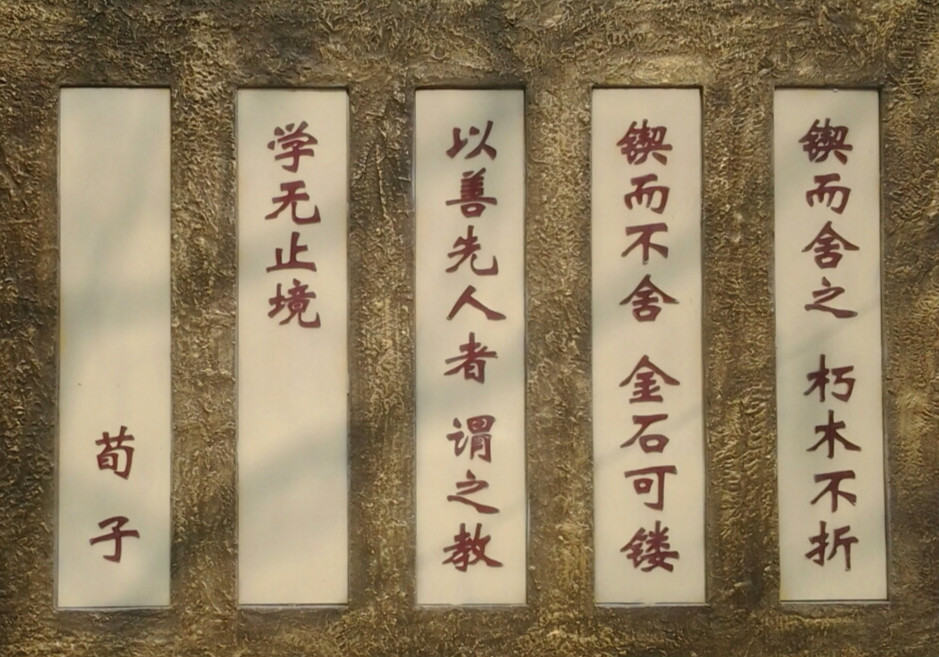 锲而舍之 朽木不折
锲而不舍 金石可镂
以善先人者 谓之教
学无止境
荀子